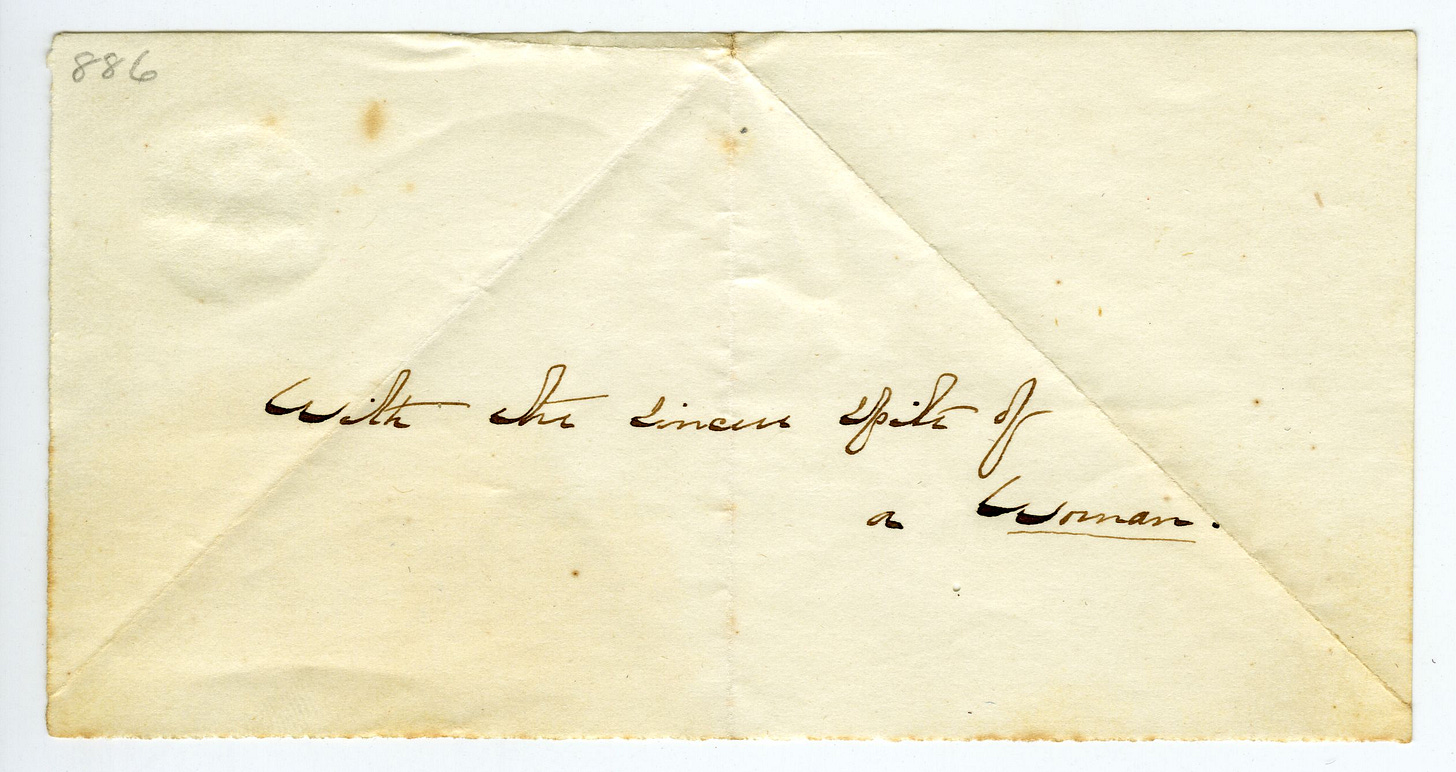 886
With the sincere spite of
a Woman.